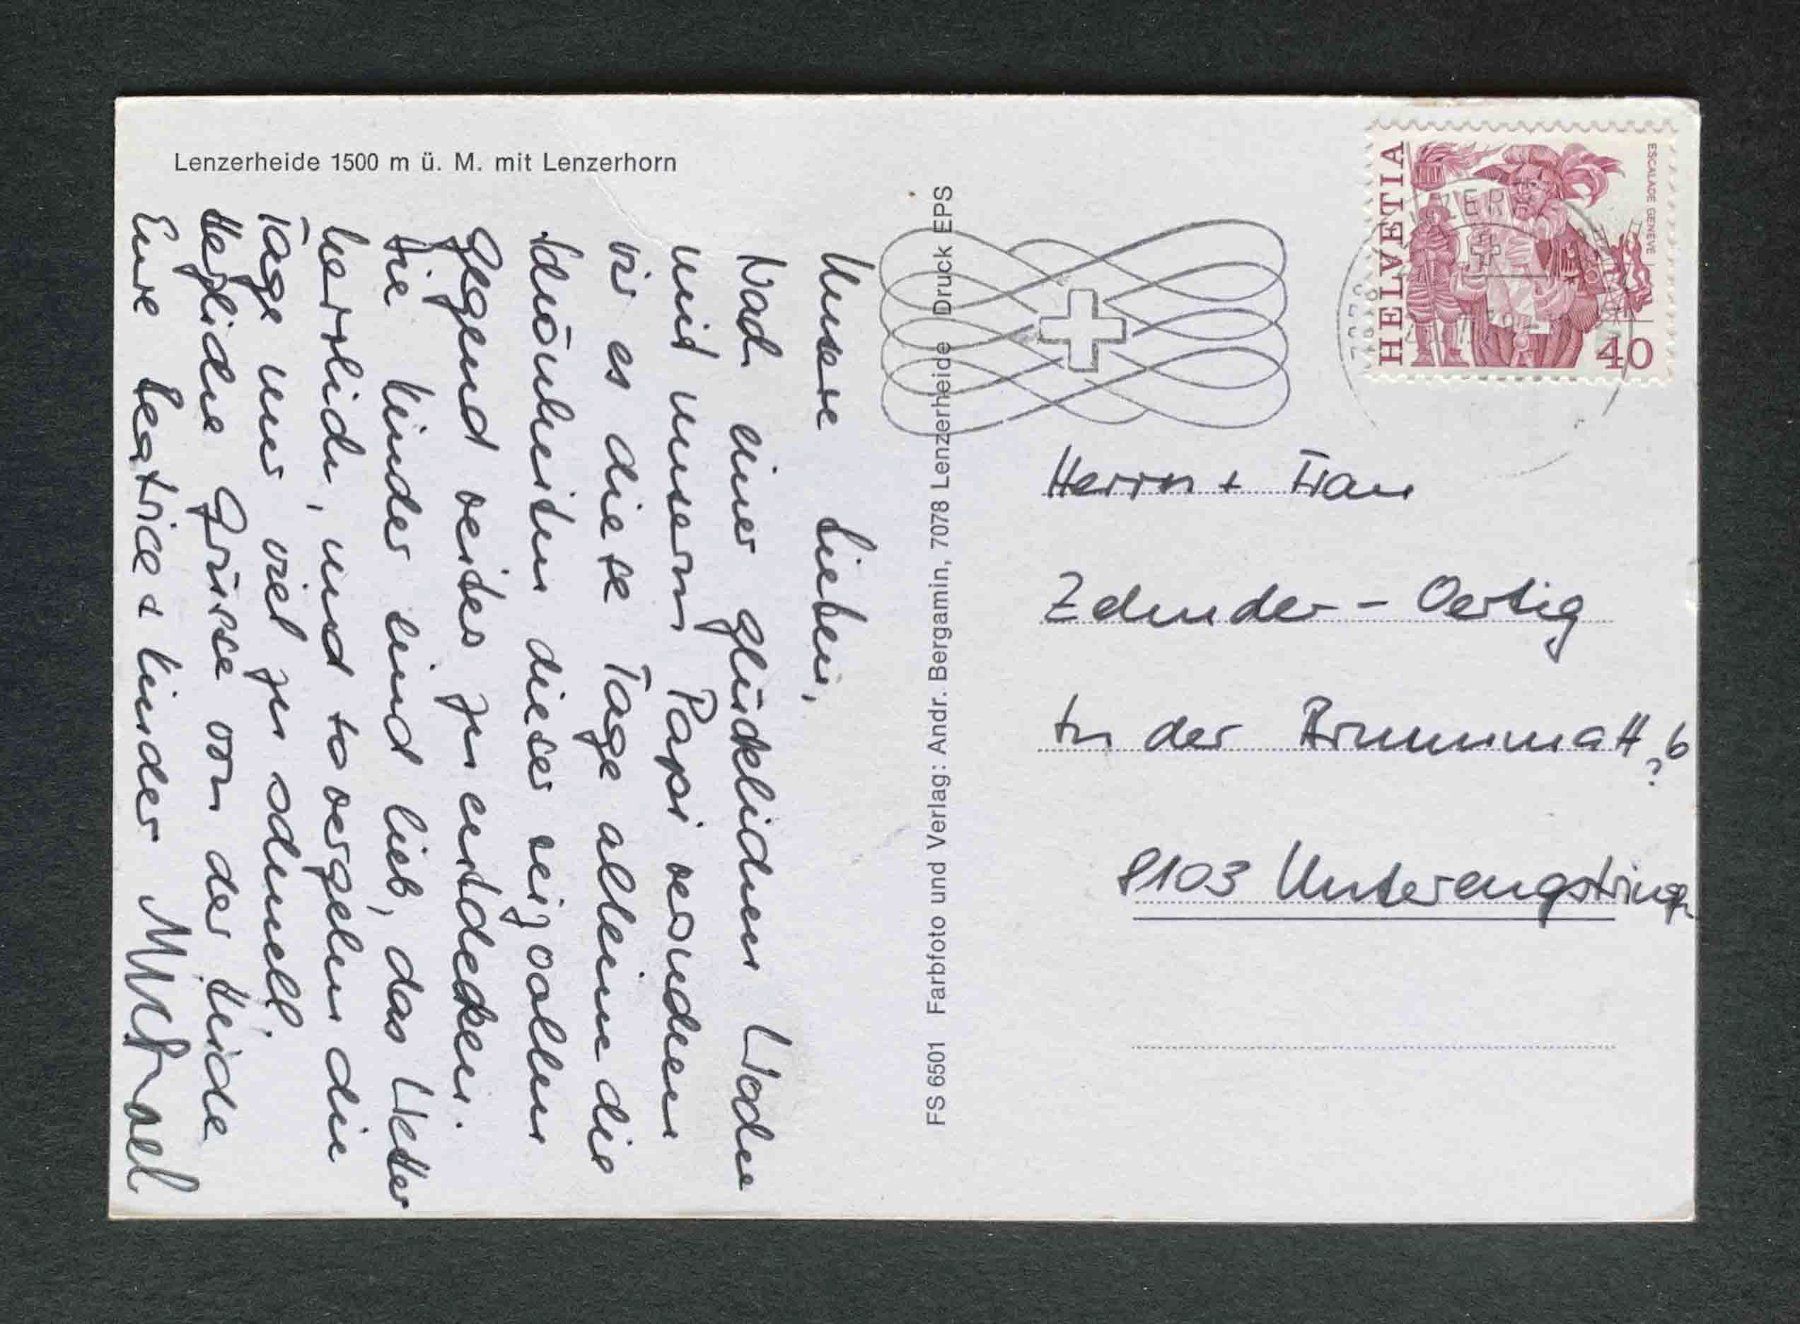 Lenzerheide 1500 m ü. M. mit Lenzerhorn
Unsere Lieben,
Nach einer glücklichen Woche
mit unserm Papi versuchen
wir es diese Tage alleine die
Schönheiten dieser reizvollen
Gegend weiter zu entdecken.
Die Kinder sind lieb, das Wetter
herrlich, und so vergehen die
Tage nur viel zu schnell
Herzliche Grüsse von der Heide
Eure Beatrice & Kinder Michael
FS 6501 Farbfoto und Verlag: Andr. Bergamin, 7078 Lenzerheide Druck EPS
HELVETIA
ESCALADE GENÈVE
40
Herrn + Frau
Zehnder-Oertig
In der Brunnmatt 6
?
8103 Unterengstringen